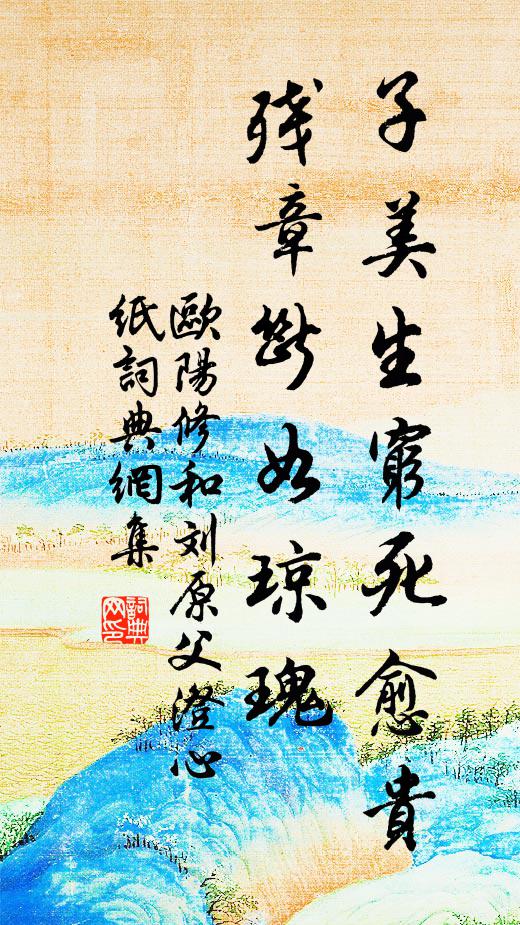 子美生窮死愈貴
残章断如琼瑰
歐陽修和刘原父澄心
紙詞典網集
詞典
网印